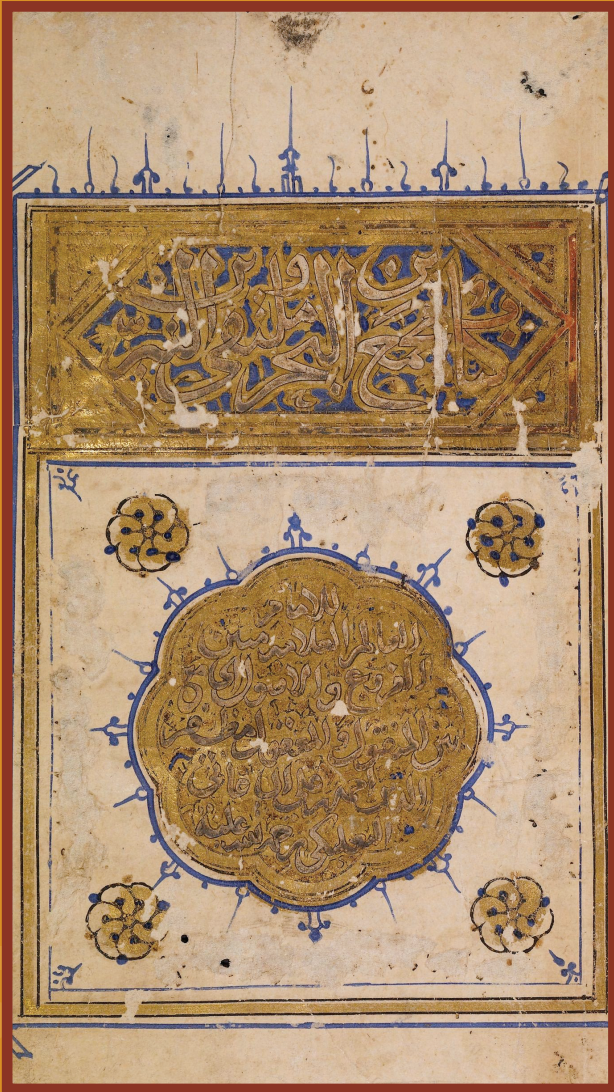 كتاب مجمع البحرين وملتقى النيرين
للامام
العالم العلامه متقن
الفروع والاصول
بين المنقول والمعقول مظفر
الدين احمد
البعلبكي رحمة الله عليه